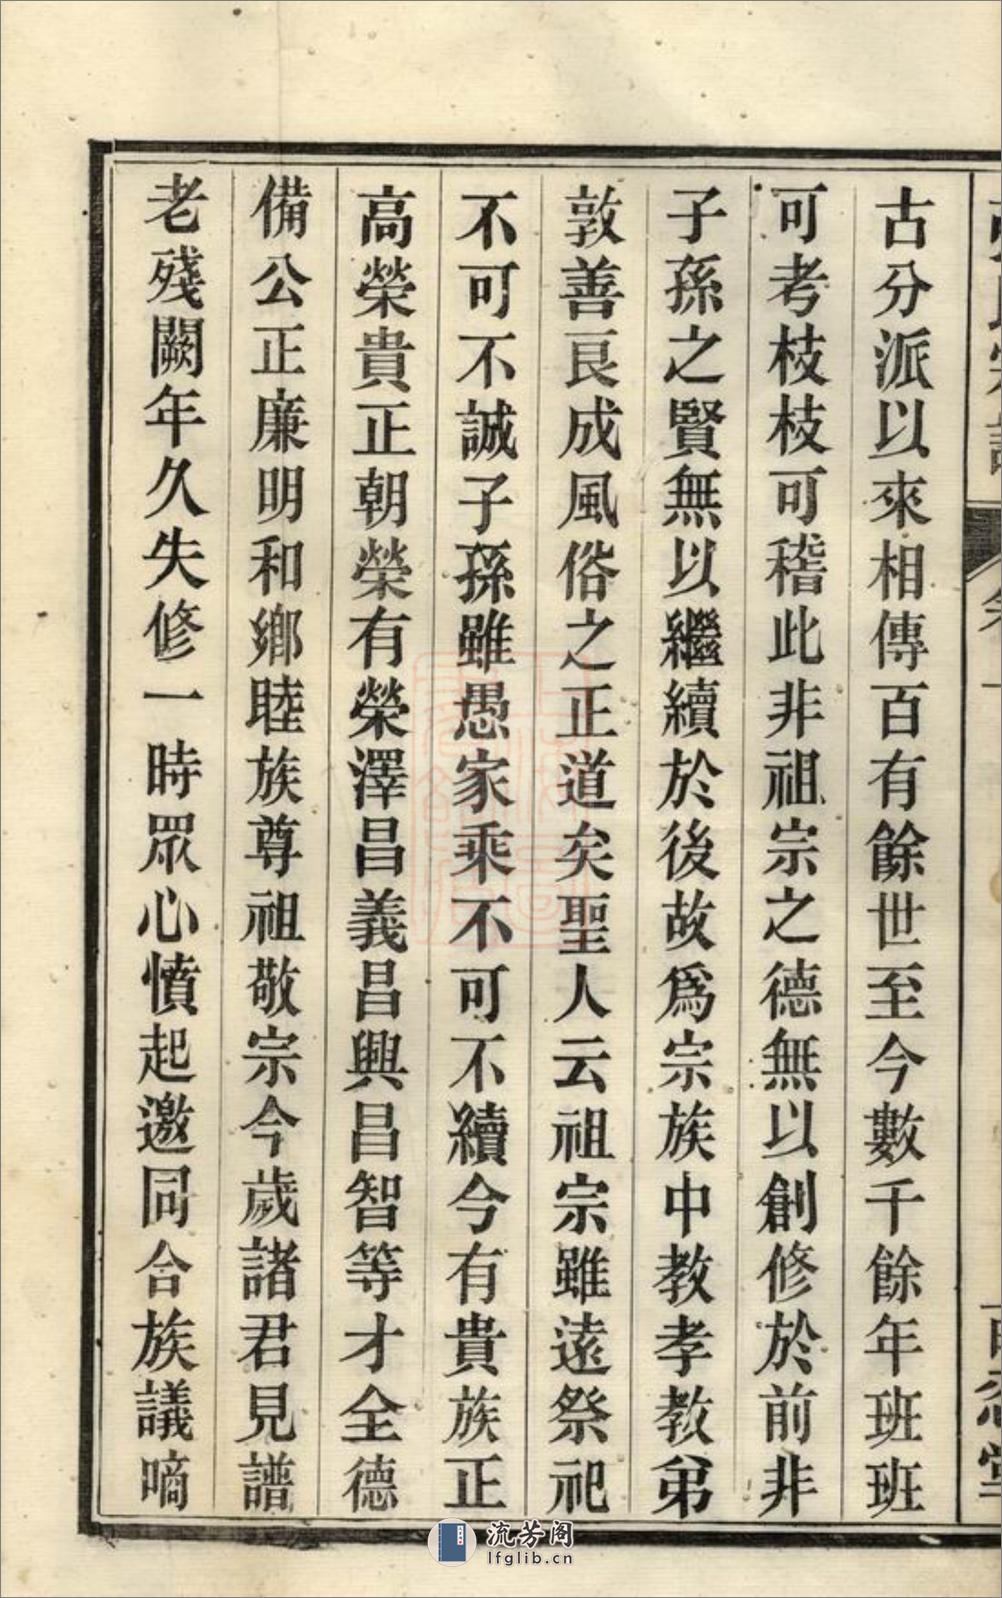 古分派以來相傳百有餘世至今數千餘年班班
可考枝枝可稽此非祖宗之德無以創修於前非
子孫之賢無以繼續於後故爲宗族中教孝教弟
敦善良成風俗之正道矣聖人云祖宗雖遠祭祀
不可不誠子孫雖愚家乘不可不續今有貴族正
高榮貴正朝榮有榮澤昌義昌興昌智等才全德
備公正廉明和鄉睦族尊祖敬宗今歲諸君見譜
老殘闕年久失修一時眾心憤起邀同合族議嘀
流芳阁
lfglib.cn